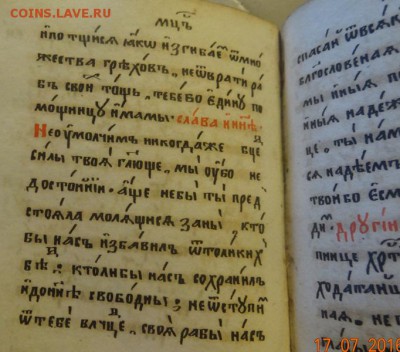 COINS.LAVE.RU
мцъ
и҆потщи́сѧ ꙗ҆́кѡ и҆згиба́е ѿ мно́
жества грѣхо́въ неѿврати́ ра́
бъ свои́ тощь тебе́ бо є҆ди́ну по
мо́щницу и҆́мамы сла́ва и҆ ны́нѣ
Не ᲂу҆молчи́м никогда́же бц҃е
си́лы твоѧ̀ гл҃юще мы̀ ᲂу҆́бо не
досто́йнїи а҆́ще не бы̀ ты̀ пред
стоѧ́ла молѧ́щисѧ за ны̀ кто̀
бы на́съ и҆зба́вил ѿ толи́ких
бѣ́д кто́ ли бы на́съ сохрани́л
и҆ до ны́нѣ свобо́дны не ѿступи́м
ѿ тебѐ влⷣчце своѧ̀ рабы̀ на́съ
спаса́й ѿ всѧ́к
благослове́наѧ
мы и҆ны́ѧ п
и҆ны́ѧ наде́ж
це ты̀ на́м
сѧ наде́емъ
твои́ бо є҆смы̀
други́й
пище хрⷭ҇т
хода́таи
нѣ́
17/07/2016